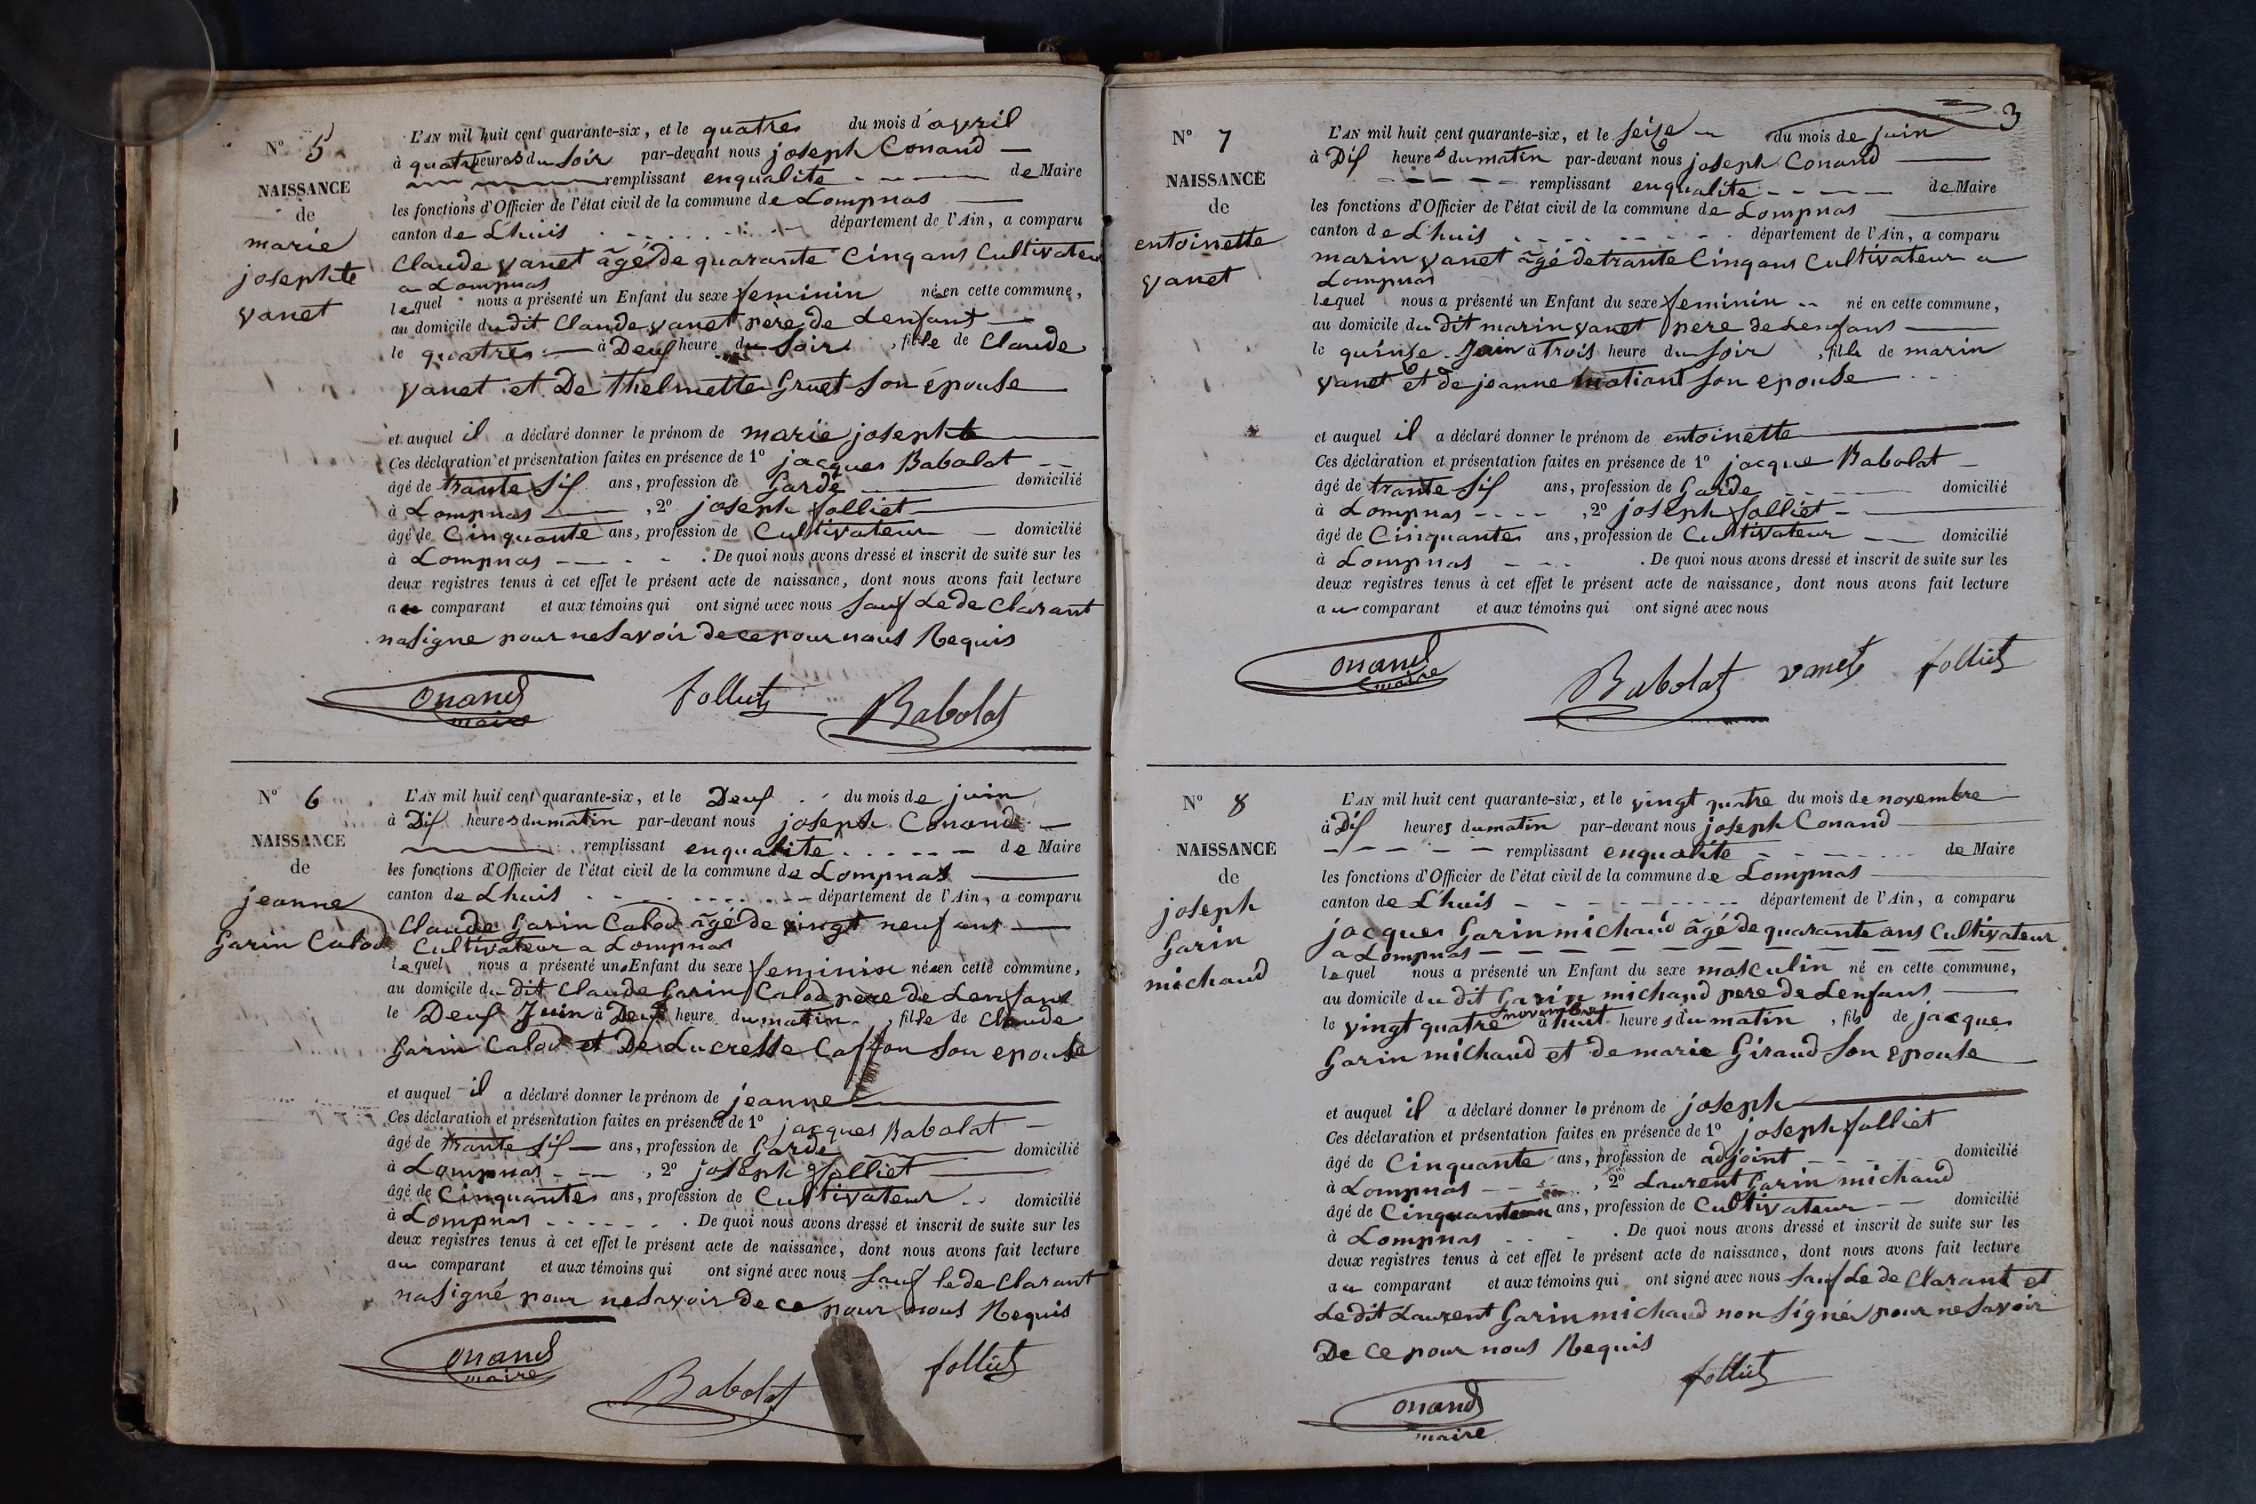 N° 5
NAISSANCE
de
marie
josephte
vanet
L'AN mil huit cent quarante-six, et le quatres du mois d'avril
à quatre heures du soir par-devant nous joseph Conand
remplissant enqualite de Maire
les fonctions d'Officier de l'état civil de la commune de Lompnas
canton de Lhuis département de l'Ain, a comparu
Claude vanet âgé de quarante Cinq ans Cultivateur
a Lompnas
lequel nous a présenté un Enfant du sexe feminin né en cette commune,
au domicile du dit Claude vanet pere de Lenfant
le quatres à Deuf heure du soir, fille de Claude
vanet et De thelmette Gruet son épouse
et auquel il a déclaré donner le prénom de marie josephte
Ces déclaration et présentation faites en présence de 1° jacques Babolat
âgé de trante sif ans, profession de Garde domicilié
à Lompnas, 2° joseph folliet
âgé de Cinquante ans, profession de Cultivateur domicilié
à Lompnas. De quoi nous avons dressé et inscrit de suite sur les
deux registres tenus à cet effet le présent acte de naissance, dont nous avons fait lecture
au comparant et aux témoins qui ont signé avec nous sauf Le de Clarant
nasigne pour ne savoir de ce pour nous Requis
Conand folliet Babolat
maire
N° 6
NAISSANCE
de
jeanne
Garin Calod
L'AN mil huit cent quarante-six, et le Deuf du mois de juin
à Dif heures du matin par-devant nous joseph Conand
remplissant enqualite de Maire
les fonctions d'Officier de l'état civil de la commune de Lompnas
canton de Lhuis département de l'Ain, a comparu
Claude Garin Calod âgé de vingt neuf ans
Cultivateur a Lompnas
lequel nous a présenté un Enfant du sexe feminin né en cette commune,
au domicile du dit Claude Garin Calod pere de Lenfant
le Deuf Juin à Deuf heure du matin, fille de Claude
Garin Calod et De Lucresse Caffon son epouse
et auquel il a déclaré donner le prénom de jeanne
Ces déclaration et présentation faites en présence de 1° jacques Babolat
âgé de trante sif ans, profession de Garde domicilié
à Lompnas, 2° joseph folliet
âgé de Cinquantes ans, profession de Cultivateur domicilié
à Lompnas. De quoi nous avons dressé et inscrit de suite sur les
deux registres tenus à cet effet le présent acte de naissance, dont nous avons fait lecture
au comparant et aux témoins qui ont signé avec nous sauf le de Clarant
nasigné pour ne savoir de ce pour nous Requis
Conand Babolat folliet
maire
3
N° 7
NAISSANCE
de
entoinette
vanet
L'AN mil huit cent quarante-six, et le seize du mois de juin
à Dif heures du matin par-devant nous joseph Conand
remplissant enqualite de Maire
les fonctions d'Officier de l'état civil de la commune de Lompnas
canton de Lhuis département de l'Ain, a comparu
marin vanet âgé de trante Cinq ans Cultivateur a
Lompnas
lequel nous a présenté un Enfant du sexe feminin né en cette commune,
au domicile du dit marin vanet pere de Lenfans
le quinse Juin à Trois heure du soir, fille de marin
vanet et de jeanne son epouse
et auquel il a déclaré donner le prénom de entoinette
Ces déclaration et présentation faites en présence de 1° jacque Babolat
âgé de trante sif ans, profession de Garde domicilié
à Lompnas, 2° joseph folliet
âgé de Cinquantes ans, profession de Cultivateur domicilié
à Lompnas. De quoi nous avons dressé et inscrit de suite sur les
deux registres tenus à cet effet le présent acte de naissance, dont nous avons fait lecture
au comparant et aux témoins qui ont signé avec nous
Conand Babolat vanet folliet
maire
N° 8
NAISSANCE
de
joseph
Garin
michaud
L'AN mil huit cent quarante-six, et le vingt quatre du mois de novembre
à Dif heures du matin par-devant nous joseph Conand
remplissant enqualite de Maire
les fonctions d'Officier de l'état civil de la commune de Lompnas
canton de Lhuis département de l'Ain, a comparu
jacques Garin michaud âgé de quarante ans Cultivateur
a Lompnas
lequel nous a présenté un Enfant du sexe masculin né en cette commune,
au domicile du dit Garin michaud pere de Lenfans
le vingt quatre novembre à huit heures du matin, fils de jacques
Garin michaud et de marie Giraud son epouse
et auquel il a déclaré donner le prénom de joseph
Ces déclaration et présentation faites en présence de 1° joseph folliet
âgé de Cinquante ans, profession de adjoint domicilié
à Lompnas, 2° Laurent Garin michaud
âgé de ans, profession de Cultivateur domicilié
à Lompnas. De quoi nous avons dressé et inscrit de suite sur les
deux registres tenus à cet effet le présent acte de naissance, dont nous avons fait lecture
au comparant et aux témoins qui ont signé avec nous sauf Le de Clarant et
Le dit Laurent Garin michaud non signés pour ne savoir
De ce pour nous Requis
Conand folliet
maire